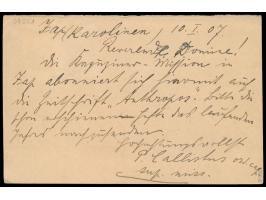 Jap/Karolinen, 10. I. 07.
Reverende Domine!
die Kapuziner-Mission in
Jap abonniert sich hiermit auf
die Zeitschrift "Anthropos". Bitte die
schon erschienenen Hefte des laufenden
Jahres nachzusenden.
Hochachtungsvollst
P. Callistus O. Cap.
sup. miss.